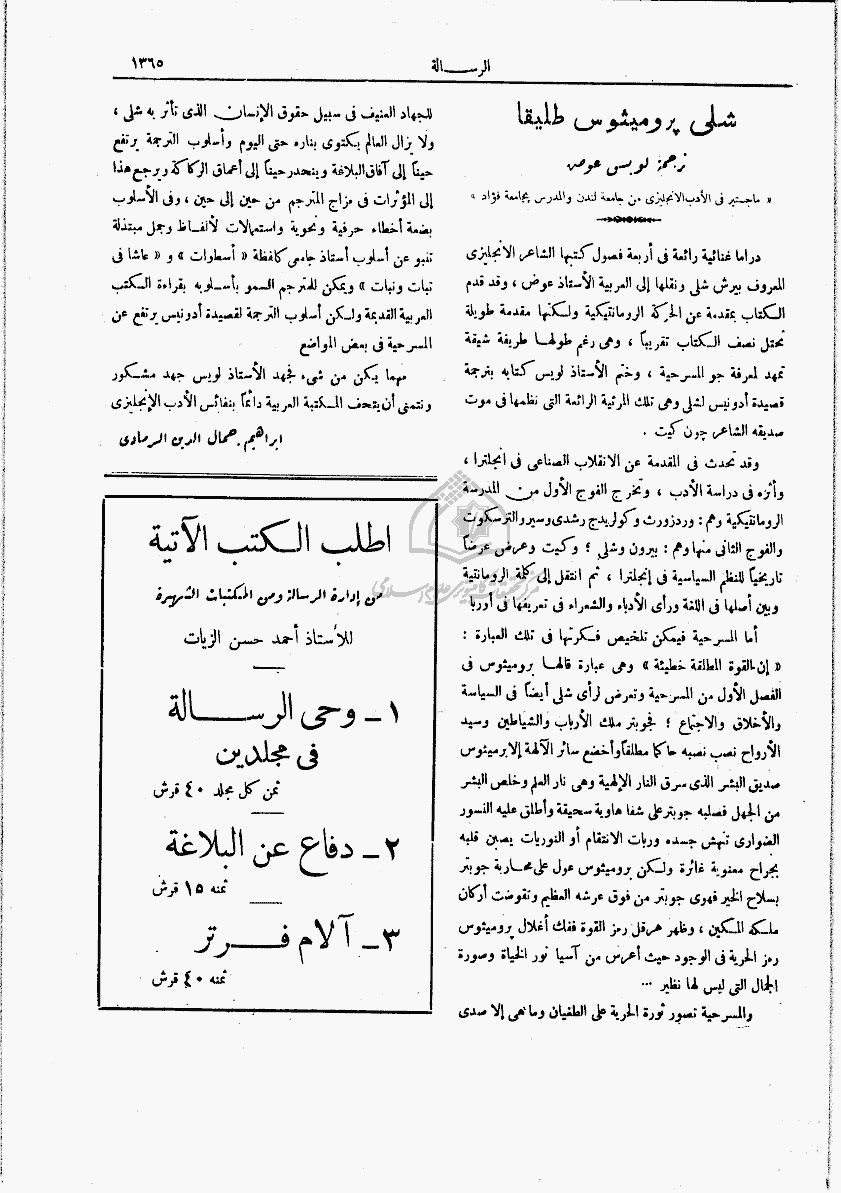 الرسالة
١٣٦٥
شلى پروميثوس طليقا
ترجمة لويس عوض
« ماجستير فى الأدب الانجليزى من جامعة لندن والمدرس بجامعة فؤاد »
دراما غنائية رائعة فى أربعة فصول كتبها الشاعر الانجليزى
المعروف بيرش شلى ونقلها إلى العربية الأستاذ عوض ، وقد قدم
الكتاب بمقدمة عن الحركة الرومانتيكية ولكنها مقدمة طويلة
تحتل نصف الكتاب تقريباً ، وهى رغم طولها طريفة شيقة
تمهد لمعرفة جو المسرحية ، وختم الأستاذ لويس كتابه بترجمة
قصيدة أدونيس لشلى وهى تلك المرثية الرائعة التى نظمها فى موت
صديقه الشاعر چون كيت .
وقد تحدث فى المقدمة عن الانقلاب الصناعى فى انجلترا ،
وأثره فى دراسة الأدب ، وتخرج الفوج الأول من المدرسة
الرومانتيكية وهم : وردزورث وكولريدج رشدى وسير والترسكوت
والفوج الثانى منها وهم : بيرون وشلى ؛ وكيت وعرض عرضاً
تاريخياً للنظم السياسية فى إنجلترا ، ثم انتقل إلى كلمة الرومانتية
وبين أصلها فى اللغة ورأى الأدباء والشعراء فى تعريفها فى أوربا
أما المسرحية فيمكن تلخيص فكرتها فى تلك العبارة :
« إن القوة المطلقة خطيئة » وهى عبارة قالها بروميثوس فى
الفصل الأول من المسرحية وتعرض لرأى شلى أيضاً فى السياسة
والأخلاق والاجتماع ؛ فجوبتر ملك الأرباب والشياطين وسيد
الأرواح نصب نصبه حاكما مطلقاً وأخضع سائر الآلهة إلا برميثوس
صديق البشر الذى سرق النار الإلهية وهى نار العلم وخلص البشر
من الجهل فصلبه جوبتر على شفا هاوية سحيقة وأطلق عليه النسور
الضوارى تنهش جسده وربات الانتقام أو النوريات يصبن قلبه
بجراح معنوية غائرة ولكن بروميثوس عول على محاربة جوبتر
بسلاح الخير فهوى جوبتر من فوق عرشه العظيم وتقوضت أركان
ملكه المكين ، وظهر هرقل رمز القوة ففك أغلال پروميثوس
رمز الحرية فى الوجود حيث أعرس من آسيا نور الحياة وصورة
الجمال التى ليس لها نظير ...
والمسرحية تصور ثورة الحرية على الطغيان وما هى إلا صدى
للجهاد العنيف فى سبيل حقوق الإنسان الذى تأثر به شلى ،
ولا يزال العالم يكتوى بناره حتى اليوم وأسلوب الترجمة يرتفع
حيناً إلى آفاق البلاغة وينحدر حيناً إلى أعماق الركاكة ويرجع هذا
إلى المؤثرات فى مزاج المترجم من حين إلى حين ، وفى الأسلوب
بضعة أخطاء حرفية ونحوية واستعمالات لألفاظ وجمل مبتذلة
تنبو عن أسلوب أستاذ جامعى كلفظة « أسطوات » و « عاشا فى
تبات ونبات » ويمكن للمترجم السمو بأسلوبه بقراءة الكتب
العربية القديمة ولكن أسلوب الترجمة لقصيدة أدونيس يرتفع عن
المسرحية فى بعض المواضع
مهما يكن من شىء فجهد الأستاذ لويس جهد مشكور
ونتمنى أن يتحف المكتبة العربية دائماً بنفائس الأدب الإنجليزى
ابراهيم جمال الدين الرمادى
اطلب الكتب الآتية
من إدارة الرسالة ومن المكتبات الشهيرة
للأستاذ أحمد حسن الزيات
١ - وحى الرسالة
فى مجلدين
ثمن كل مجلد ٤٠ قرش
٢ - دفاع عن البلاغة
ثمنه ١٥ قرش
٣ - آلام فرتر
ثمنه ٤٠ قرش